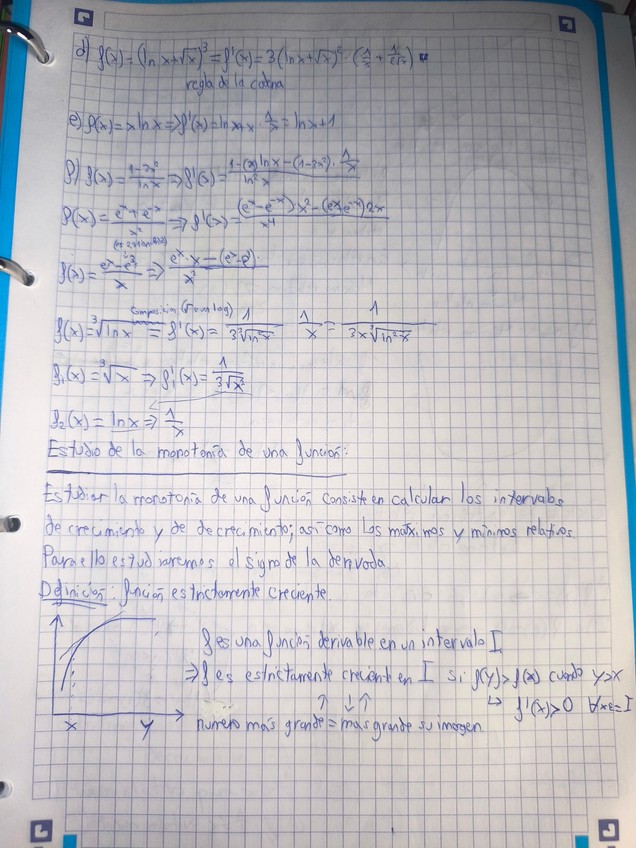 d) f(x) = (ln x + √x)³ = f'(x) = 3(ln x + √x)² · (1/x + 1/2√x)
regla de la cadena
e) f(x) = x ln x => f'(x) = ln x + x · 1/x = ln x + 1
f) f(x) = (1-3x²)/(ln x) => f'(x) = ( ln x - (1-3x²) · 1/x)/(ln² x)
f(x) = (eˣ + e⁻ˣ)/x² => f'(x) = ((eˣ - e⁻ˣ) x² - (eˣ e⁻ˣ) 2x)/x⁴
f(x) = (eˣ - e²)/x => (eˣ · x - (eˣ - e²))/x²
composición
f(x) = ³√(ln x) = f'(x) = 1/(3 ³√(ln² x)) 1/x = 1/(3x ³√(ln² x))
f₁(x) = ³√x => f₁'(x) = 1/(3 √x²)
f₂(x) = ln x => 1/x
Estudio de la monotonía de una función:
Estudiar la monotonía de una función consiste en calcular los intervalos
de crecimiento y de decrecimiento; así como los máximos y mínimos relativos.
Para ello estudiaremos el signo de la derivada
Definición: función estrictamente creciente
f es una función derivable en un intervalo I
=> f es estrictamente crecient en I si f(y) > f(x) cuando y > x
↳ f'(x) > 0 ∀x ∈ I
x y
numero más grande = mas grande su imagen